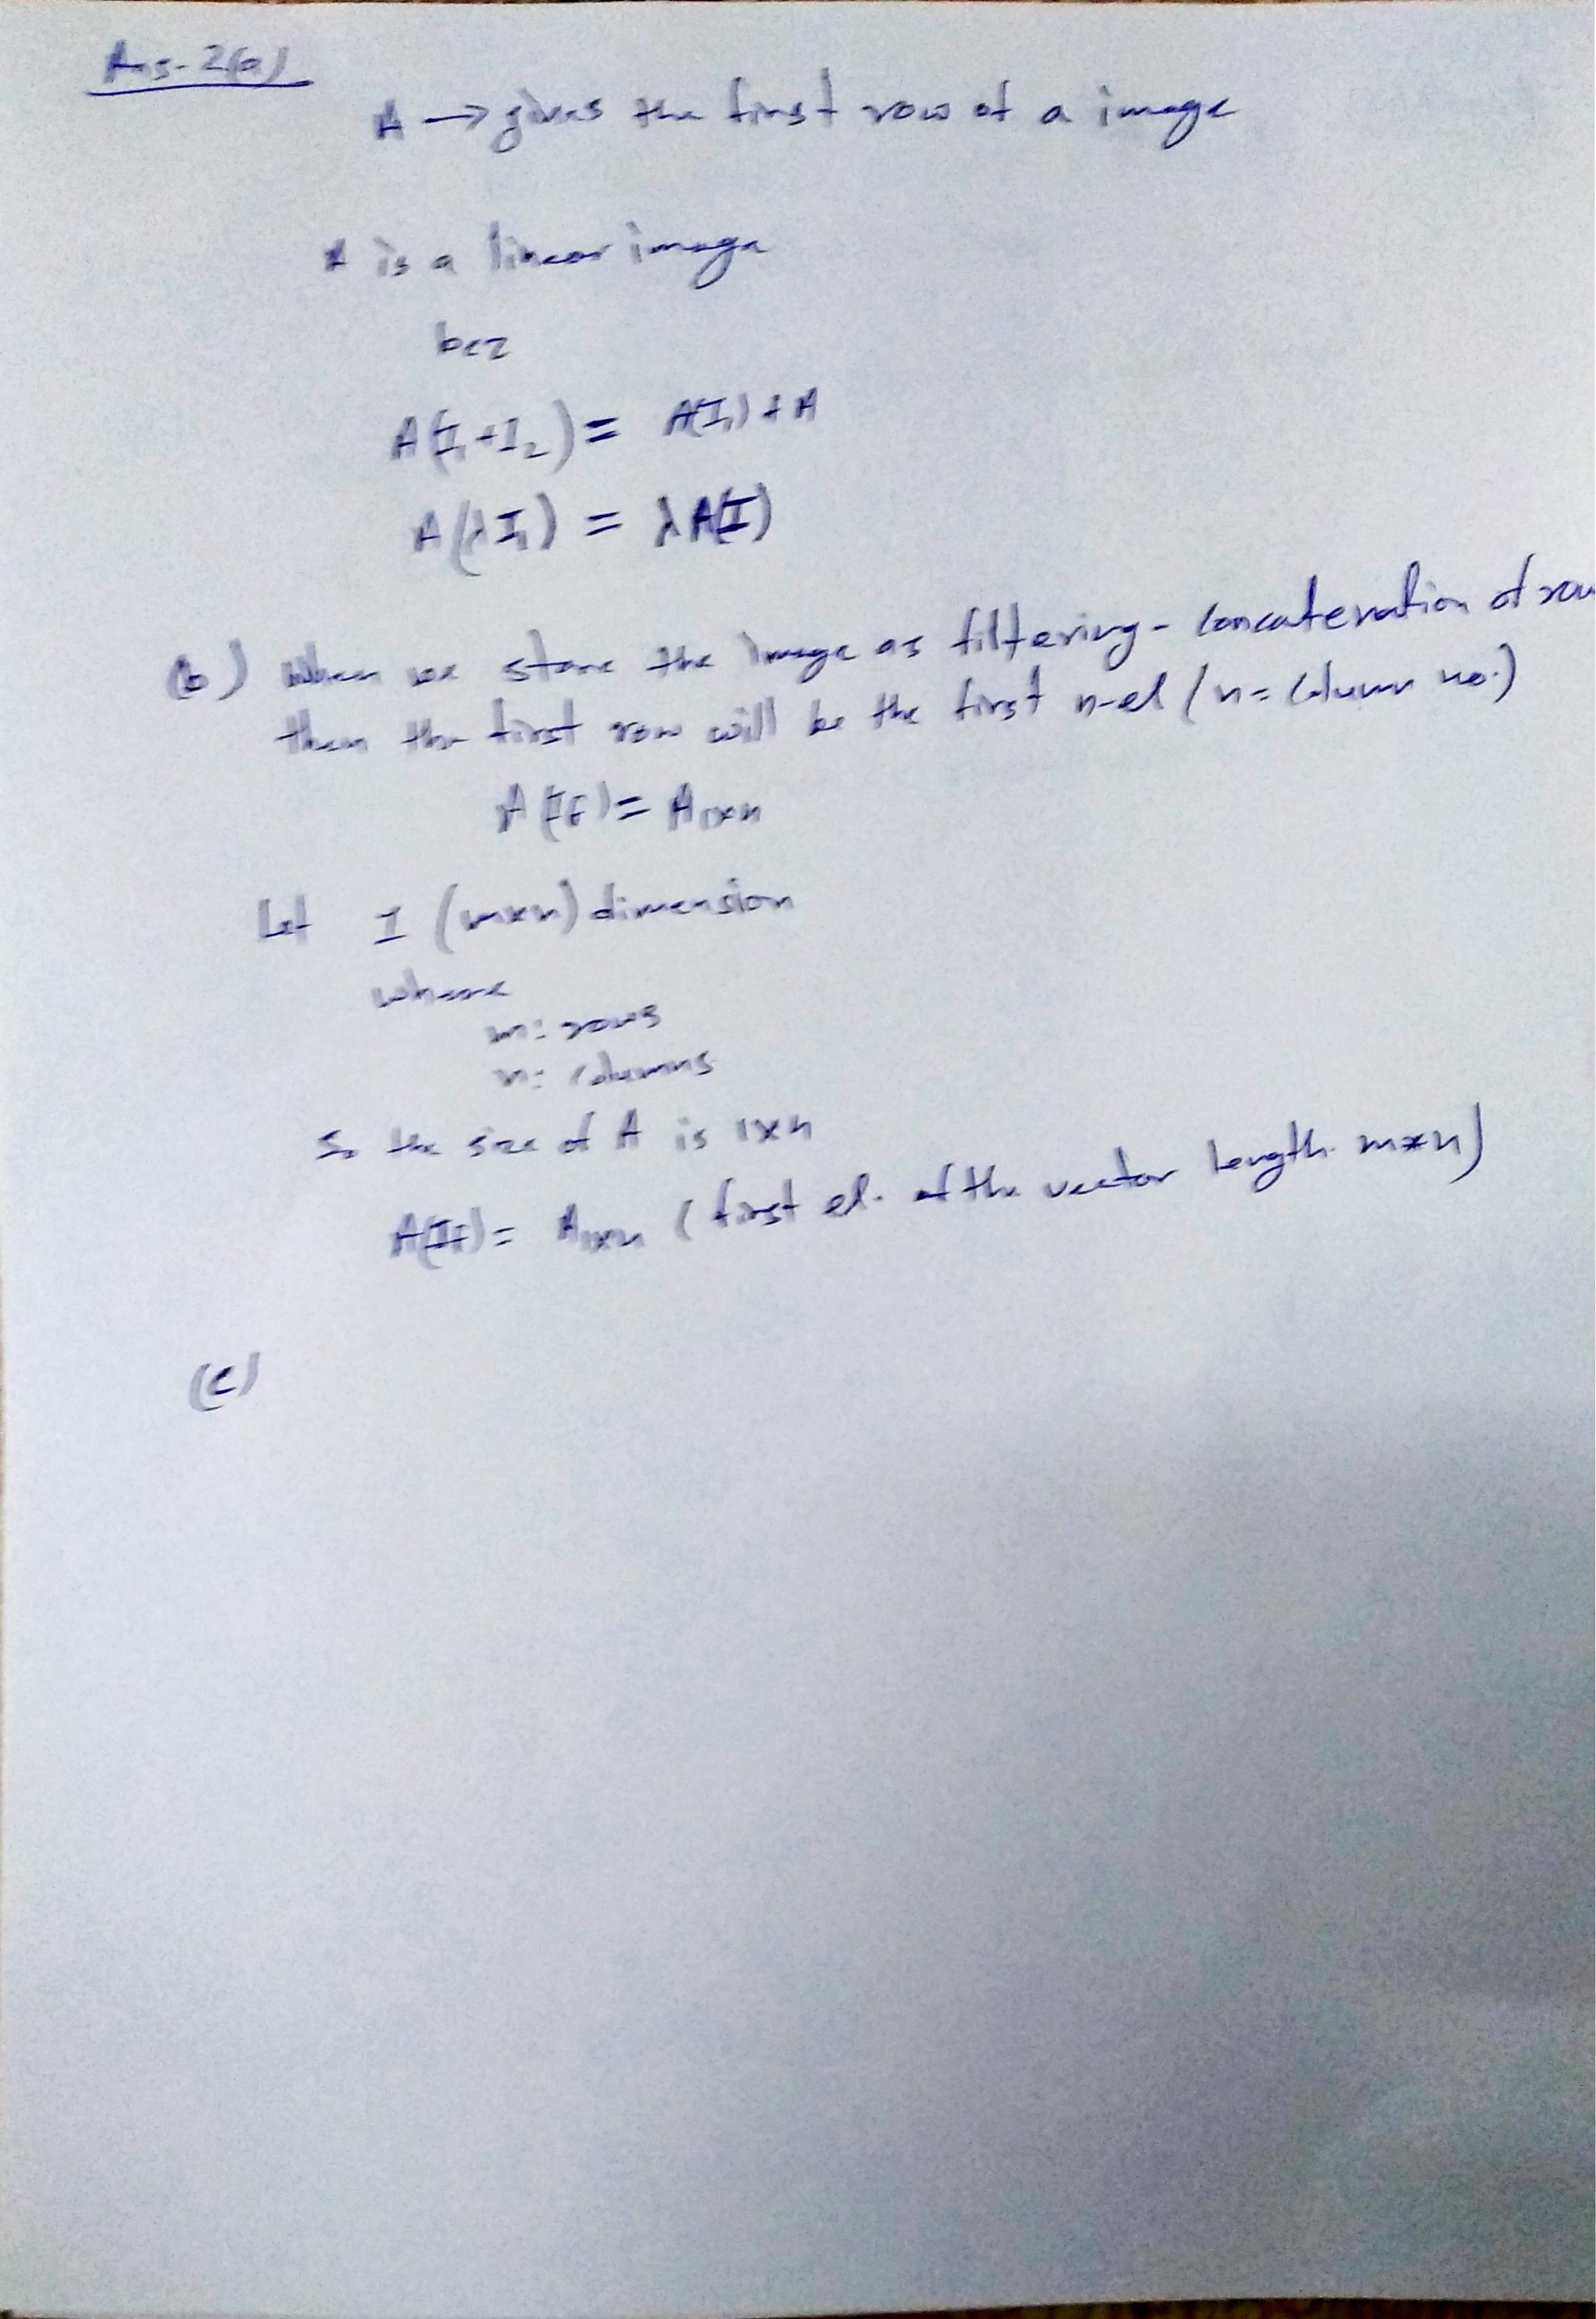 Ans-2(a)
A → gives the first row of a image
A is a linear image
bcz
A(I₁+I₂) = A(I₁) + A
A(λI₁) = λA(I)
(b) When we store the image as filtering - concatenation of row
then the first row will be the first n-el (n = column no.)
A(If) = A₁ₓₙ
Let I (m×n) dimension
where
m: rows
n: columns
So the size of A is 1×n
A(If) = A₁ₓₙ (first el. of the vector length m*n)
(c)